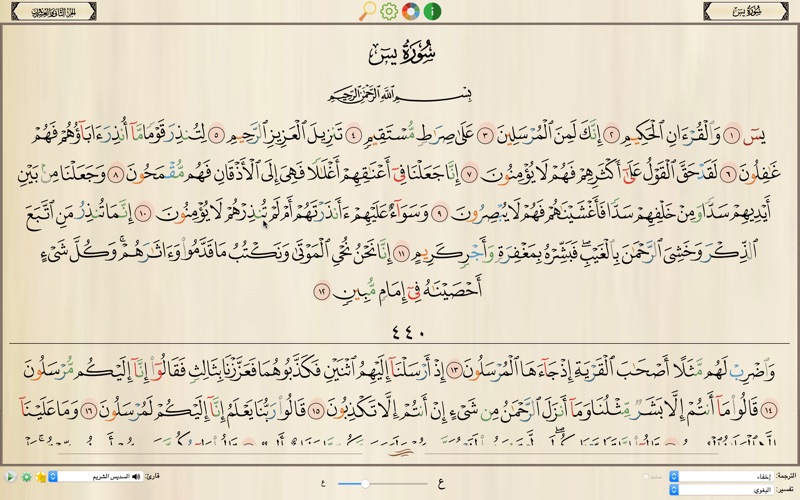 الجزء الثاني والعشرون
سُورَةُ يسٓ
سُورَةُ يسٓ
بِسْمِ ٱللَّهِ ٱلرَّحْمَٰنِ ٱلرَّحِيمِ
يسٓ ١ وَٱلْقُرْءَانِ ٱلْحَكِيمِ ٢ إِنَّكَ لَمِنَ ٱلْمُرْسَلِينَ ٣ عَلَىٰ صِرَٰطٍ مُّسْتَقِيمٍ ٤ تَنزِيلَ ٱلْعَزِيزِ ٱلرَّحِيمِ ٥ لِتُنذِرَ قَوْمًا مَّآ أُنذِرَ ءَابَآؤُهُمْ فَهُمْ
غَٰفِلُونَ ٦ لَقَدْ حَقَّ ٱلْقَوْلُ عَلَىٰٓ أَكْثَرِهِمْ فَهُمْ لَا يُؤْمِنُونَ ٧ إِنَّا جَعَلْنَا فِىٓ أَعْنَٰقِهِمْ أَغْلَٰلًا فَهِىَ إِلَى ٱلْأَذْقَانِ فَهُم مُّقْمَحُونَ ٨ وَجَعَلْنَا مِنۢ بَيْنِ
أَيْدِيهِمْ سَدًّا وَمِنْ خَلْفِهِمْ سَدًّا فَأَغْشَيْنَٰهُمْ فَهُمْ لَا يُبْصِرُونَ ٩ وَسَوَآءٌ عَلَيْهِمْ ءَأَنذَرْتَهُمْ أَمْ لَمْ تُنذِرْهُمْ لَا يُؤْمِنُونَ ١٠ إِنَّمَا تُنذِرُ مَنِ ٱتَّبَعَ
ٱلذِّكْرَ وَخَشِىَ ٱلرَّحْمَٰنَ بِٱلْغَيْبِ ۖ فَبَشِّرْهُ بِمَغْفِرَةٍ وَأَجْرٍ كَرِيمٍ ١١ إِنَّا نَحْنُ نُحْىِ ٱلْمَوْتَىٰ وَنَكْتُبُ مَا قَدَّمُوا۟ وَءَاثَٰرَهُمْ ۚ وَكُلَّ شَىْءٍ
أَحْصَيْنَٰهُ فِىٓ إِمَامٍ مُّبِينٍ ١٢
٤٤٠
وَٱضْرِبْ لَهُم مَّثَلًا أَصْحَٰبَ ٱلْقَرْيَةِ إِذْ جَآءَهَا ٱلْمُرْسَلُونَ ١٣ إِذْ أَرْسَلْنَآ إِلَيْهِمُ ٱثْنَيْنِ فَكَذَّبُوهُمَا فَعَزَّزْنَا بِثَالِثٍ فَقَالُوٓا۟ إِنَّآ إِلَيْكُم مُّرْسَلُونَ
١٤ قَالُوا۟ مَآ أَنتُمْ إِلَّا بَشَرٌ مِّثْلُنَا وَمَآ أَنزَلَ ٱلرَّحْمَٰنُ مِن شَىْءٍ إِنْ أَنتُمْ إِلَّا تَكْذِبُونَ ١٥ قَالُوا۟ رَبُّنَا يَعْلَمُ إِنَّآ إِلَيْكُمْ لَمُرْسَلُونَ ١٦ وَمَا عَلَيْنَآ
قارئ: السديس الشريم
ع ع
الترجمة: إخفاء
تفسير: البغوي